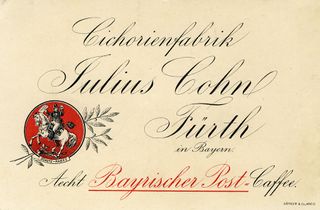 Cichorienfabrik
Julius Cohn
Fürth
in Bayern.
Aecht Bayrischer Post-Caffee.